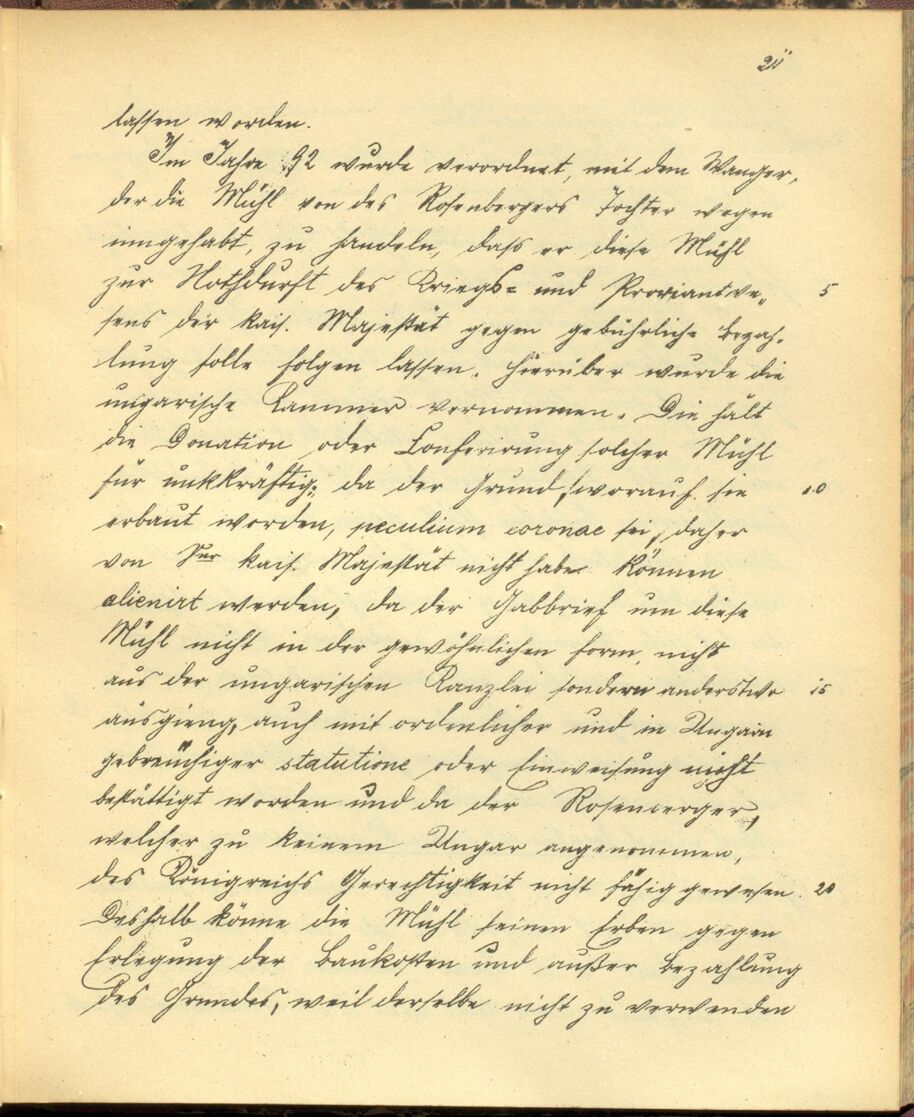 lassen worden.
Im Jahre 92 wurde verordnet, mit dem Wanger,
der die Mühl von des Rosenbergers Töchter wegen
inngehabt, zu handeln, daß er diese Mühl
zur Nothdurft des Kriegs- und Proviantwe- 5
sens der kais. Majestät gegen gebührliche Bezah-
lung solle folgen lassen. Hierüber wurde die
ungarische Kammer vernommen. Die hält
die Donation oder Conferirung solcher Mühl
für unkräftig; da der Grund, worauf sie 10
erbaut worden, peculium coronae sei, daher
von Sr kais. Majestät nicht habe können
alienirt werden, da der Gabbrief um diese
Mühl nicht in der gewöhnlichen Form, nicht
aus der ungarischen Kanzlei sondern anderstwo 15
ausgieng, auch mit ordenlicher und in Ungarn
gebreuchiger statutione oder Einweisung nicht
bestättigt worden und da der Rosenberger,
welcher zu keinem Ungar angenommen,
des Königreichs Gerechtigkeit nicht fähig gewesen. 20
Deshalb könne die Mühl seinen Erben gegen
Erlegung der Baukosten und außer Bezahlung
des Grundes, weil derselbe nicht zu verwenden